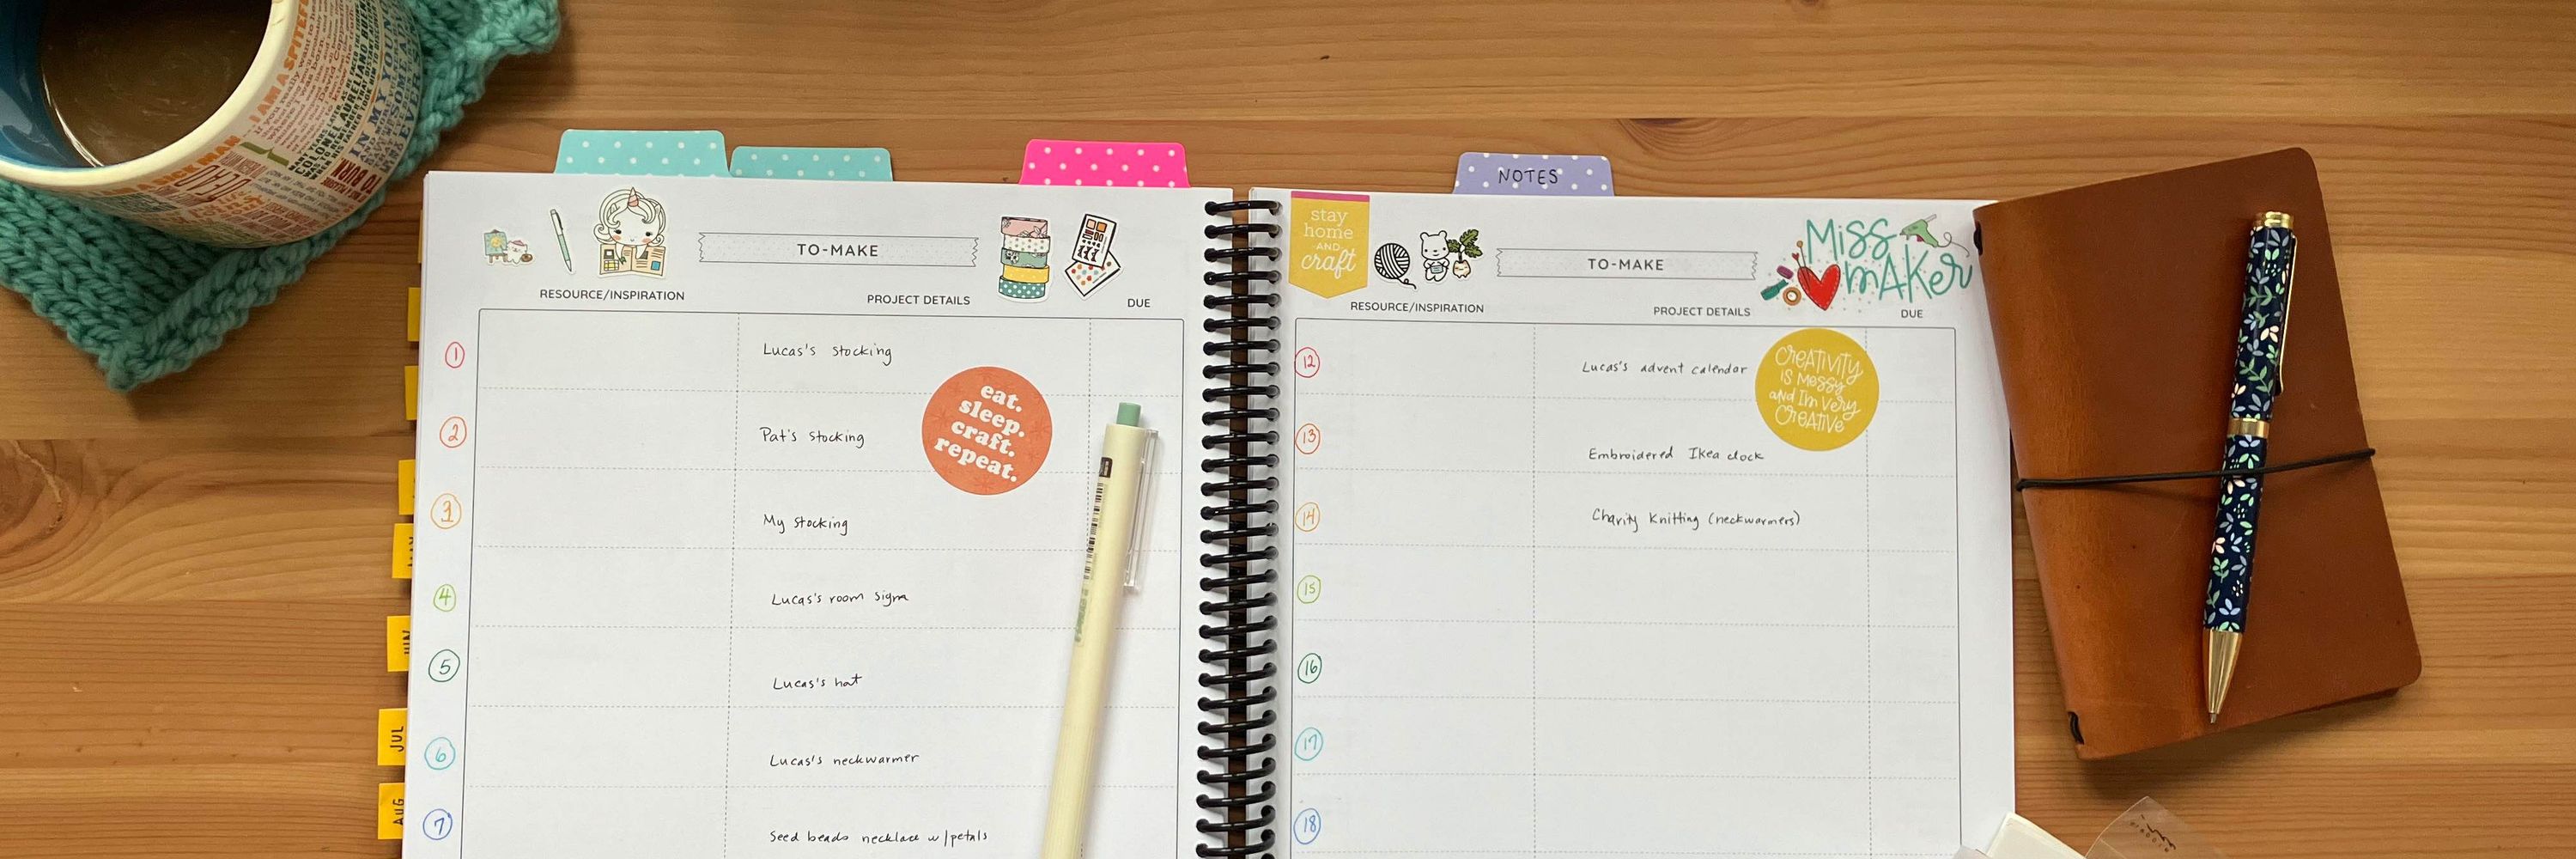 I AM A SPITEFUL
COLONEL AURELIANO BUENDIA
IN MY YOUNGER
DEAD
NOTES
stay
home
AND
craft
TO-MAKE
RESOURCE/INSPIRATION
PROJECT DETAILS
DUE
1
Lucas's stocking
eat.
sleep.
craft.
repeat.
2
Pat's stocking
3
My stocking
4
Lucas's room sign
5
Lucas's hat
6
Lucas's neckwarmer
7
Seed beads necklace w/petals
JUN
JUL
AUG
TO-MAKE
Miss
mAKer
RESOURCE/INSPIRATION
PROJECT DETAILS
DUE
12
Lucas's advent calendar
CreATIVITY
is Messy
and I'm Very
CreATIVe
13
Embroidered Ikea clock
14
Charity Knitting (neckwarmers)
15
16
17
18